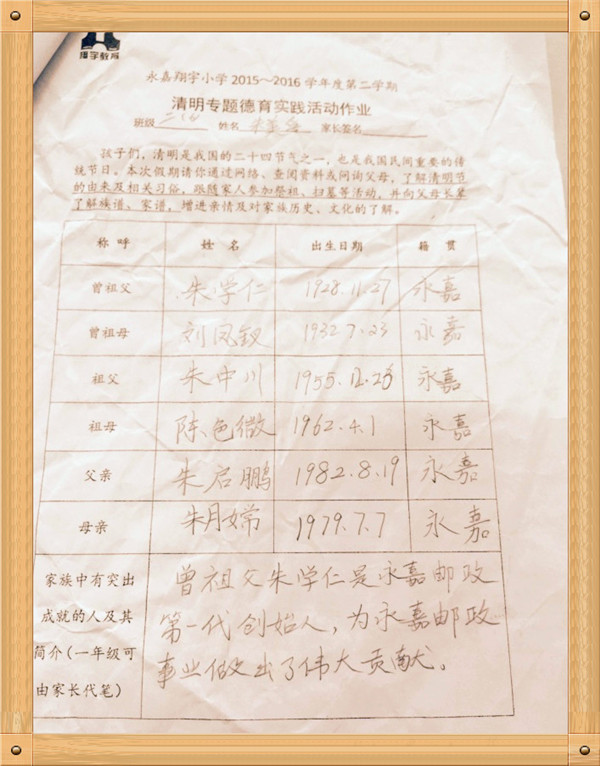 翔宇教育
永嘉翔宇小学2015～2016学年度第二学期
清明专题德育实践活动作业
班级 姓名 家长签名
孩子们，清明是我国的二十四节气之一，也是我国民间重要的传
统节日。本次假期请你通过网络、查阅资料或问询父母，了解清明节
的由来及相关习俗，跟随家人参加祭祖、扫墓等活动，并向父母长辈
了解族谱、家谱，增进亲情及对家族历史、文化的了解。
称呼 姓名 出生日期 籍贯
曾祖父 朱学仁 1928.11.27 永嘉
曾祖母 刘凤钗 1932.7.23 永嘉
祖父 朱中川 1955.12.26 永嘉
祖母 陈色微 1962.4.1 永嘉
父亲 朱启鹏 1982.8.19 永嘉
母亲 朱月嫦 1979.7.7 永嘉
家族中有突出
成就的人及其
简介（一年级可
由家长代笔）
曾祖父朱学仁是永嘉邮政
第一代创始人，为永嘉邮政
事业做出了伟大贡献。